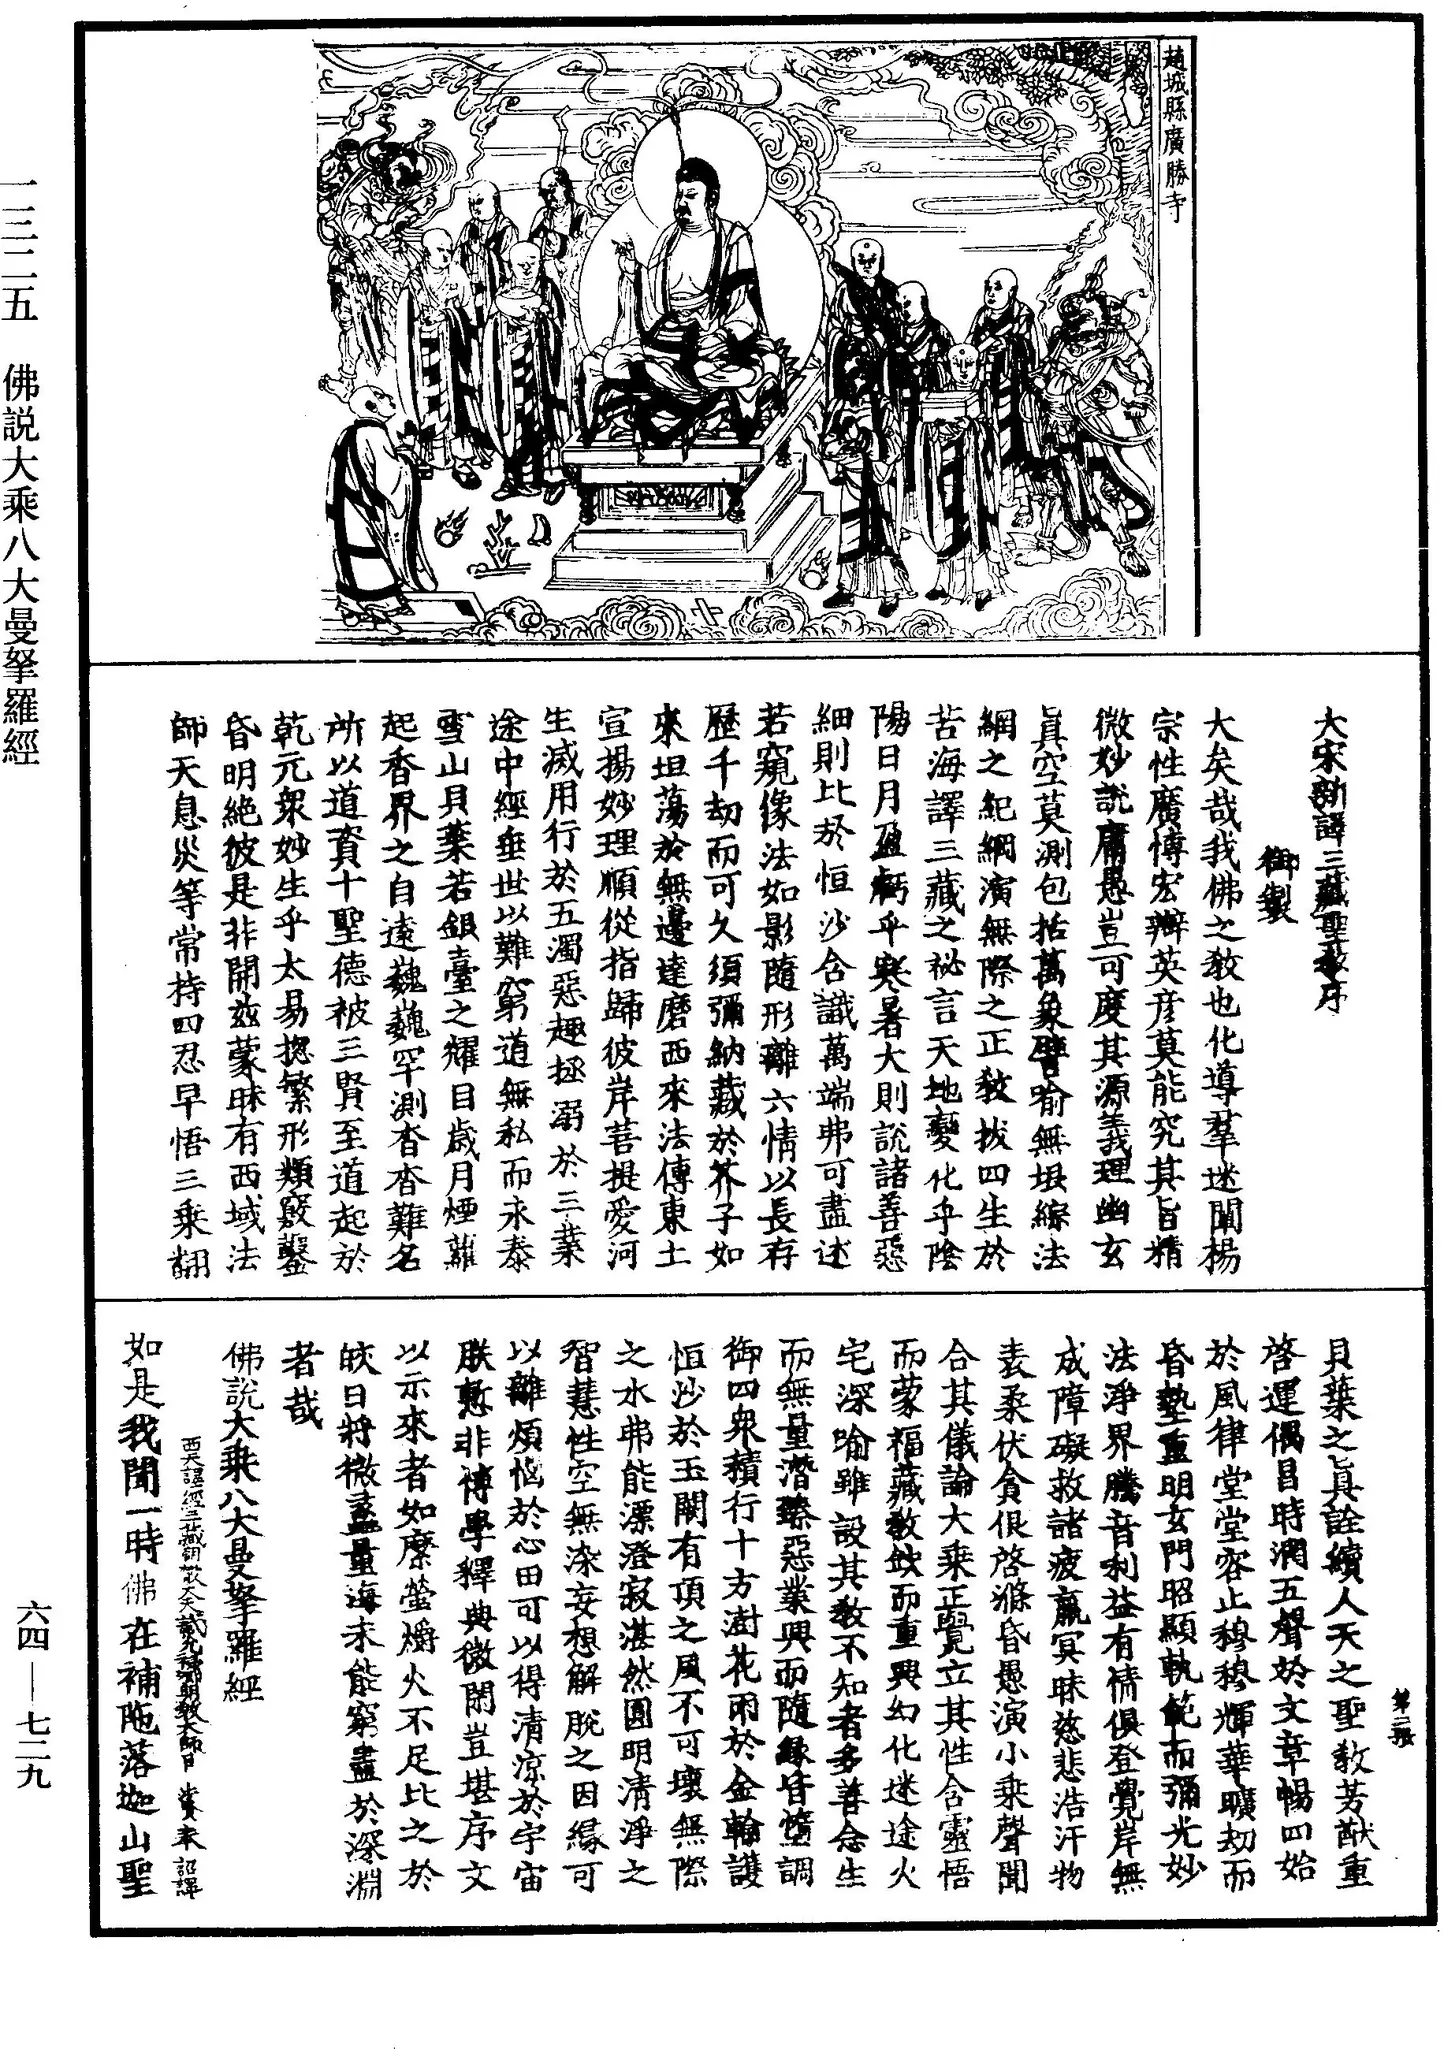 趙城縣廣勝寺
大宋新譯三藏聖教序
御製
大矣哉我佛之教也化導羣迷闡揚
宗性廣博宏辯英彦莫能究其旨精
微妙說庸愚豈可度其源義理幽玄
真空莫測包括萬象譬喻無垠綜法
網之紀綱演無際之正教拔四生於
苦海譯三藏之祕言天地變化乎陰
陽日月盈虧乎寒暑大則說諸善惡
細則比於恒沙含識萬端弗可盡述
若窺像法如影隨形離六情以長存
歷千劫而可久須彌納藏於芥子如
來坦蕩於無邊達磨西來法傳東土
宣揚妙理順從指歸彼岸菩提愛河
生滅用行於五濁惡趣拯溺於三業
途中經垂世以難窮道無私而永泰
雪山貝葉若銀臺之耀目歲月煙蘿
起香界之自遠巍巍罕測杳杳難名
所以道資十聖德被三賢至道起於
乾元衆妙生乎太易揔繁形類竅鑿
昏明絶彼是非開兹蒙昧有西域法
師天息災等常持四忍早悟三乘翻
貝葉之真詮續人天之聖教芳猷重
啓運偶昌時潤五聲於文章暢四始
於風律堂堂容止穆穆輝華曠劫而
昏墊重明玄門昭顯軌範而彌光妙
法淨界騰音利益有情俱登覺岸無
成障礙救諸疲羸冥昧慈悲浩汗物
表柔伏貪佷啓滌昏愚演小乘聲聞
合其儀論大乘正覺立其性含靈悟
而蒙福藏教缺而重興幻化迷途火
宅深喻雖設其教不知者多善念生
而無量潛臻惡業興而隨緣皆墮調
御四衆積行十方澍花雨於金輪護
恒沙於玉闕有頂之風不可壞無際
之水弗能漂澄寂湛然圓明清淨之
智慧性空無染妄想解脫之因緣可
以離煩惱於心田可以得清凉於宇宙
朕慙非博學釋典微閑豈堪序文
以示來者如縻螢爝火不足比之於
皎日將微蠡量海未能窮盡於深淵
者哉
第二張
佛說大乘八大曼拏羅經
西天譯經三藏朝散大夫試光禄卿明教大師臣法賢奉 詔譯
如是我聞一時佛在補陁落迦山聖
一三二五 佛説大乘八大曼拏羅經
六四—七二九